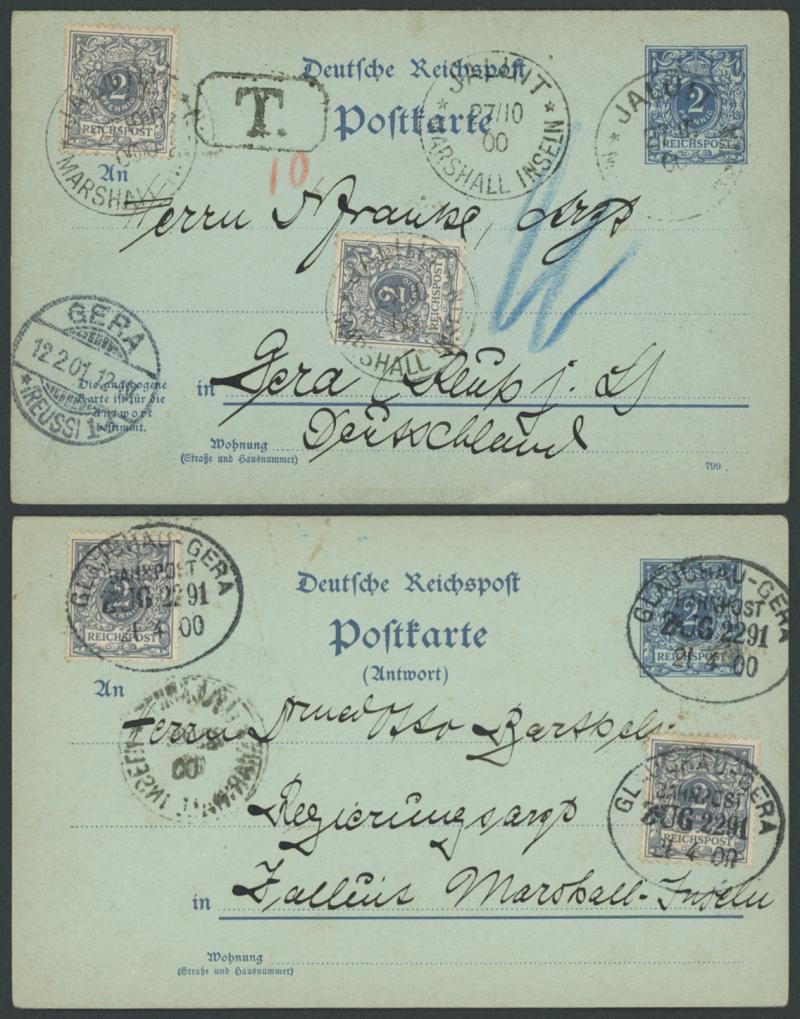 2
PFENNIG
REICHSPOST
T.
Deutsche Reichspost
Postkarte
JALUIT
27/10
00
MARSHALL INSELN
2
REICHSPOST
JALUIT
10
An
MARSHALL
Herrn Franke, Argt
2
REICHSPOST
MARSHALL
GERA
12.2.01. 12
* (REUSS) 1
Die angebogene
Karte ist für die
Antwort
bestimmt.
in Gera Reuß j. L
Deutschland
Wohnung
(Straße und Hausnummer)
799
GLAUCHAU-GERA
BAHNPOST
ZUG 2291
21 4 00
2
REICHSPOST
Deutsche Reichspost
Postkarte
(Antwort)
GLAUCHAU-GERA
BAHNPOST
ZUG 2291
21 4 00
REICHSPOST
An
Herrn Otto Bartels
00
Regierungsarzt
GLAUCHAU-GERA
BAHNPOST
ZUG 2291
21 4 00
REICHSPOST
in Jalluit Marshall-Inseln
Wohnung
(Straße und Hausnummer)